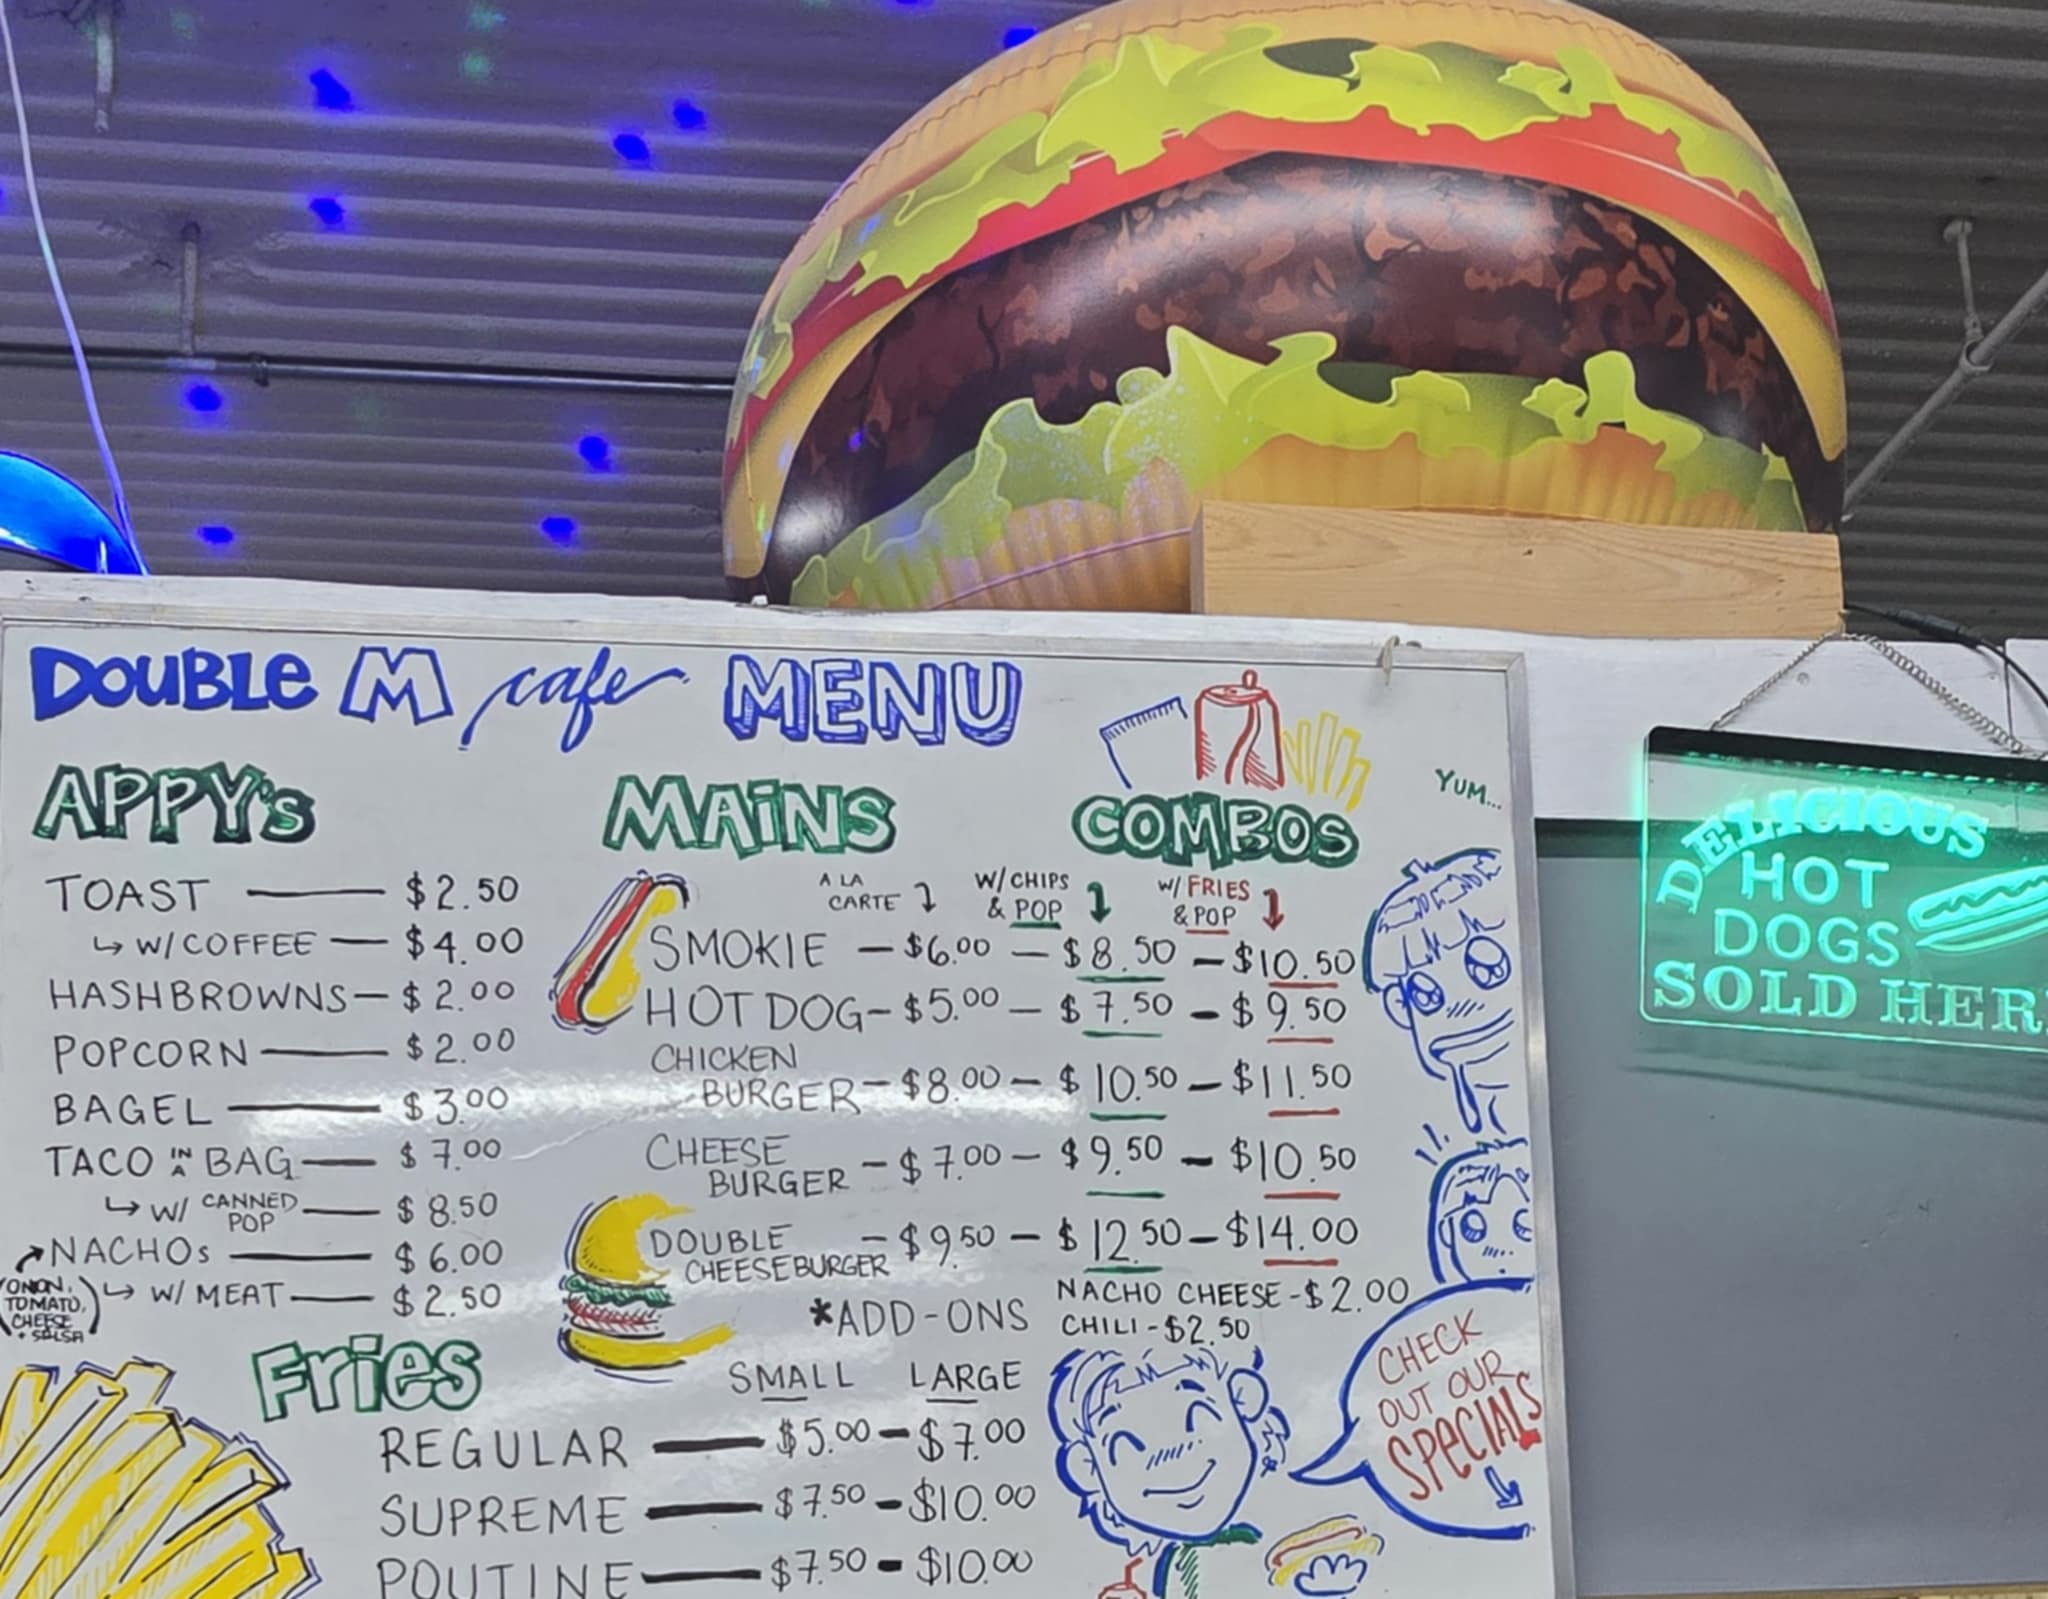 DOUBLE M cafe MENU
APPY's
TOAST — $2.50
↳ W/COFFEE — $4.00
HASHBROWNS — $2.00
POPCORN — $2.00
BAGEL — $3.00
TACO IN A BAG — $7.00
↳ W/ CANNED POP — $8.50
NACHOs — $6.00
(ONION,
TOMATO,
CHEESE
+ SALSA)
↳ W/ MEAT — $2.50
MAiNS
COMBOS
YUM...
A LA CARTE
W/CHIPS & POP
W/ FRIES & POP
SMOKIE — $6.00 — $8.50 — $10.50
HOT DOG — $5.00 — $7.50 — $9.50
CHICKEN
BURGER — $8.00 — $10.50 — $11.50
CHEESE
BURGER — $7.00 — $9.50 — $10.50
DOUBLE
CHEESEBURGER — $9.50 — $12.50 — $14.00
*ADD-ONS
NACHO CHEESE - $2.00
CHILI - $2.50
Fries
SMALL LARGE
REGULAR — $5.00 — $7.00
SUPREME — $7.50 — $10.00
POUTINE — $7.50 — $10.00
CHECK
OUT OUR
SPECIALS
DELICIOUS
HOT
DOGS
SOLD HER